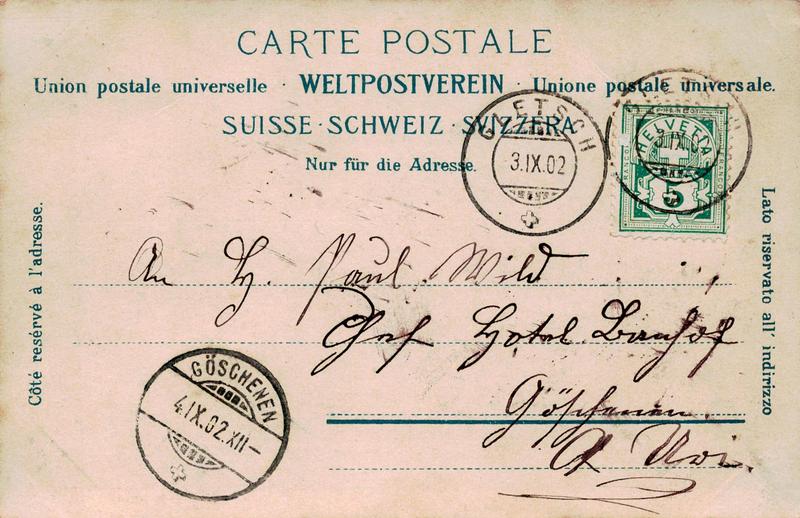 CARTE POSTALE
Union postale universelle · WELTPOSTVEREIN · Unione postale universale.
SUISSE · SCHWEIZ · SVIZZERA
Nur für die Adresse.
GLETSCH
3.IX.02
GLETSCH
3.IX.02
HELVETIA
FRANCO
FRANCO
5
Côté reservé à l'adresse.
Lato riservato all' indirizzo
An H. Paul Wild
Chef Hotel Banhof
Göschenen.
Uri.
GÖSCHENEN
4.IX.02.XII–